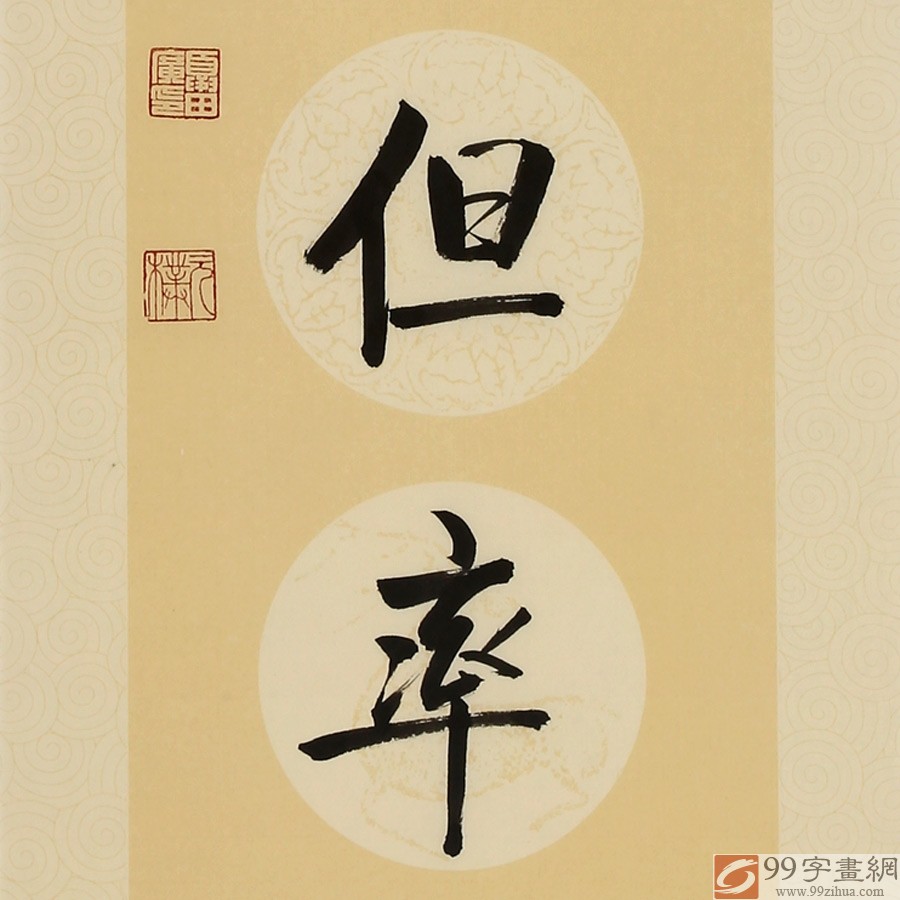 但
率
99字畫網
www.99zihua.com